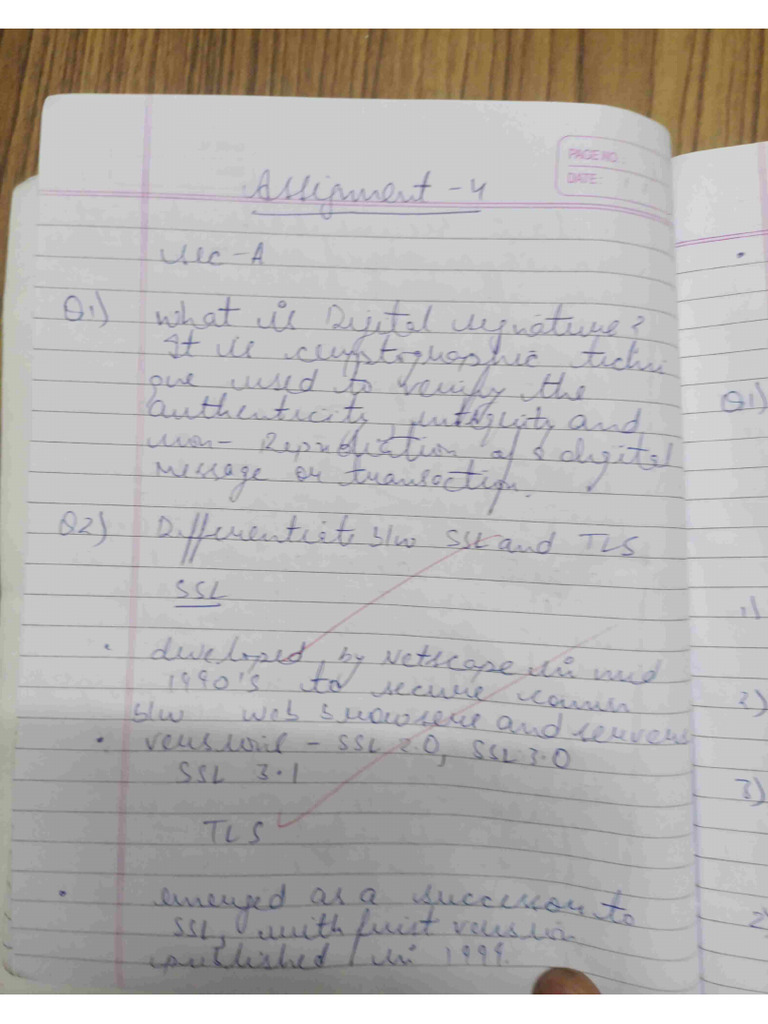 PAGE NO.:
DATE:
Assignment - 4
Sec - A
Q1) What is Digital signature?
It is cryptographic techni
que used to verify the
authenticity, integrity and
non- Repudiation of a digital
message or transaction.
Q2) Differentiate b/w SSL and TLS
SSL
• developed by Netscape in mid
1990's to secure commn
b/w web browsers and servers
• versions - SSL 2.0, SSL 3.0
SSL 3.1
TLS
• emerged as a successor to
SSL, with first version
published in 1999.
•
Q1)
1)
2)
3)
2)